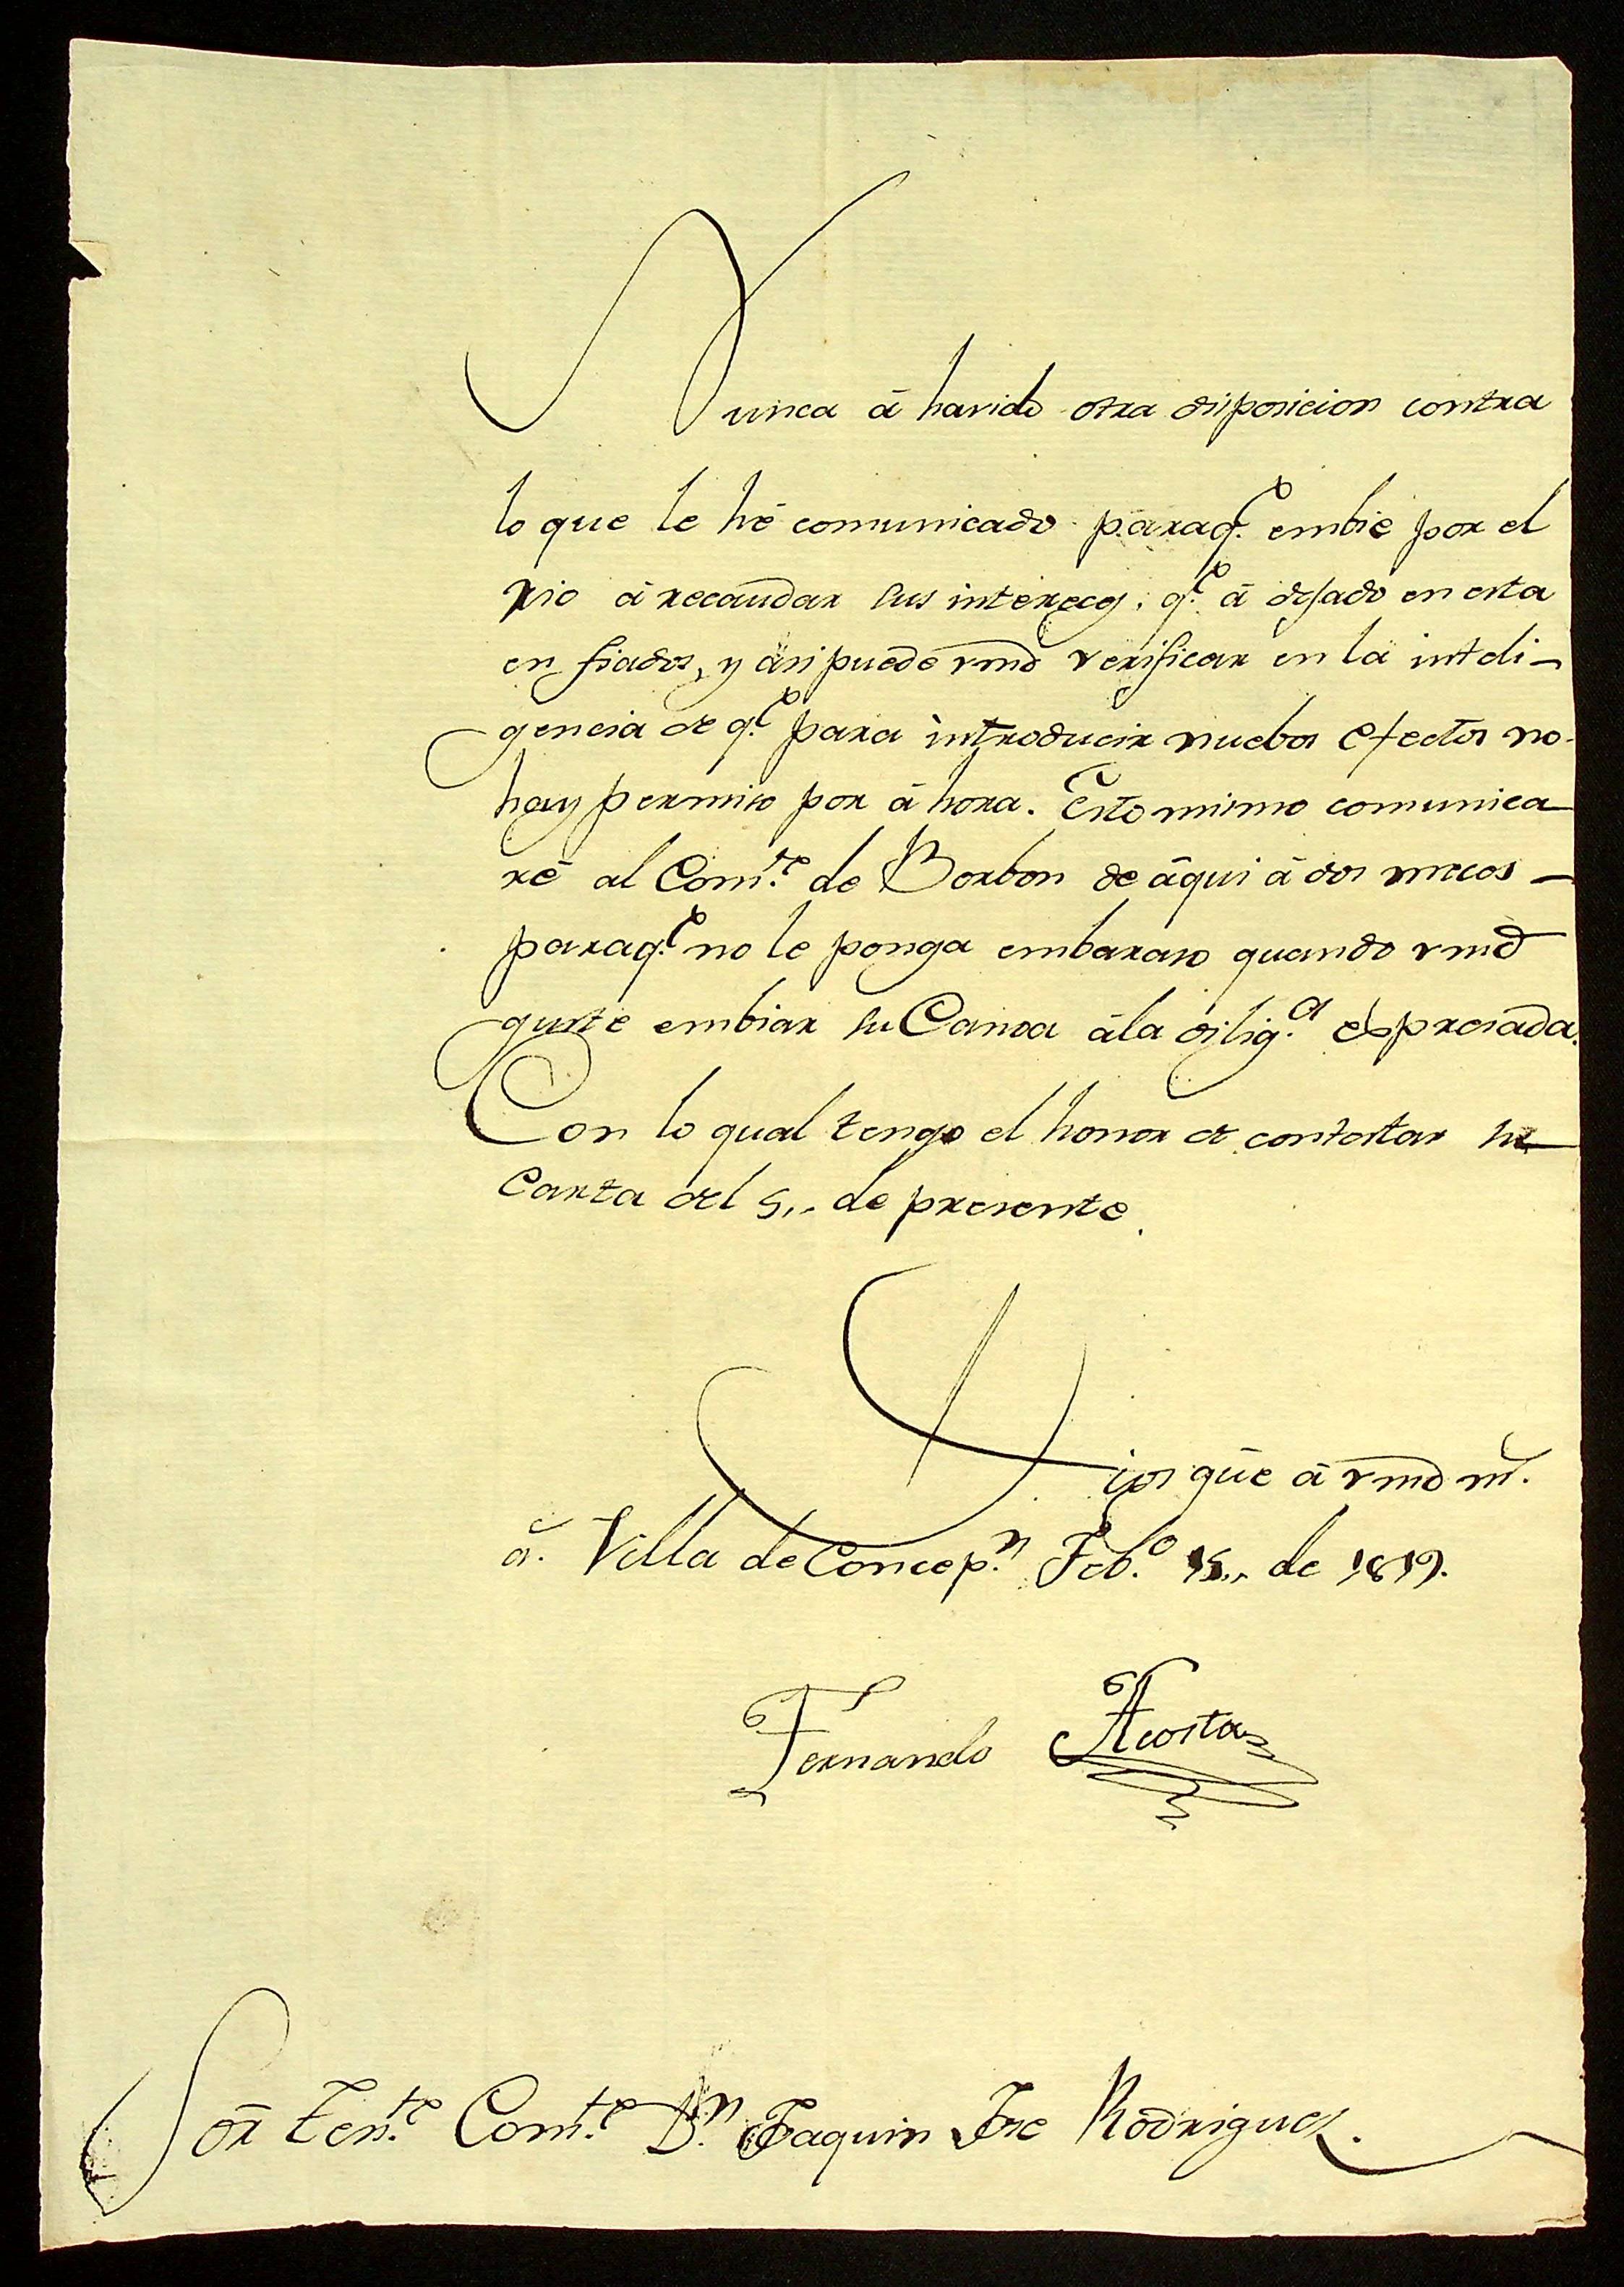 Nunca á havido otra disposicion contra
lo que le hé comunicado paraq.e embie por el
rio á recaudar sus intereces, q.e á dejado en esta
en fiados, y ási puede vmd verificar en la inteli-
gencia de q.e para introducir nuebos efectos no
hay permiso por á hora. Esto mismo comunica
ré al Com.te de Borbon de áqui á dos meces -
paraq.e no le ponga embaraso quando vmd
guste embiar su Canoa ála dilig.a expresada.
Con lo qual tengo el honor de contestar su
Carta del 5,, de presente.
Dios gũe á vmd m.s
a.s Villa de Concep.n Feb.o 15,, de 1819.
Fernando Acosta
Sor Ten.te Com.te D.n Joaquin Jose Rodriguez.